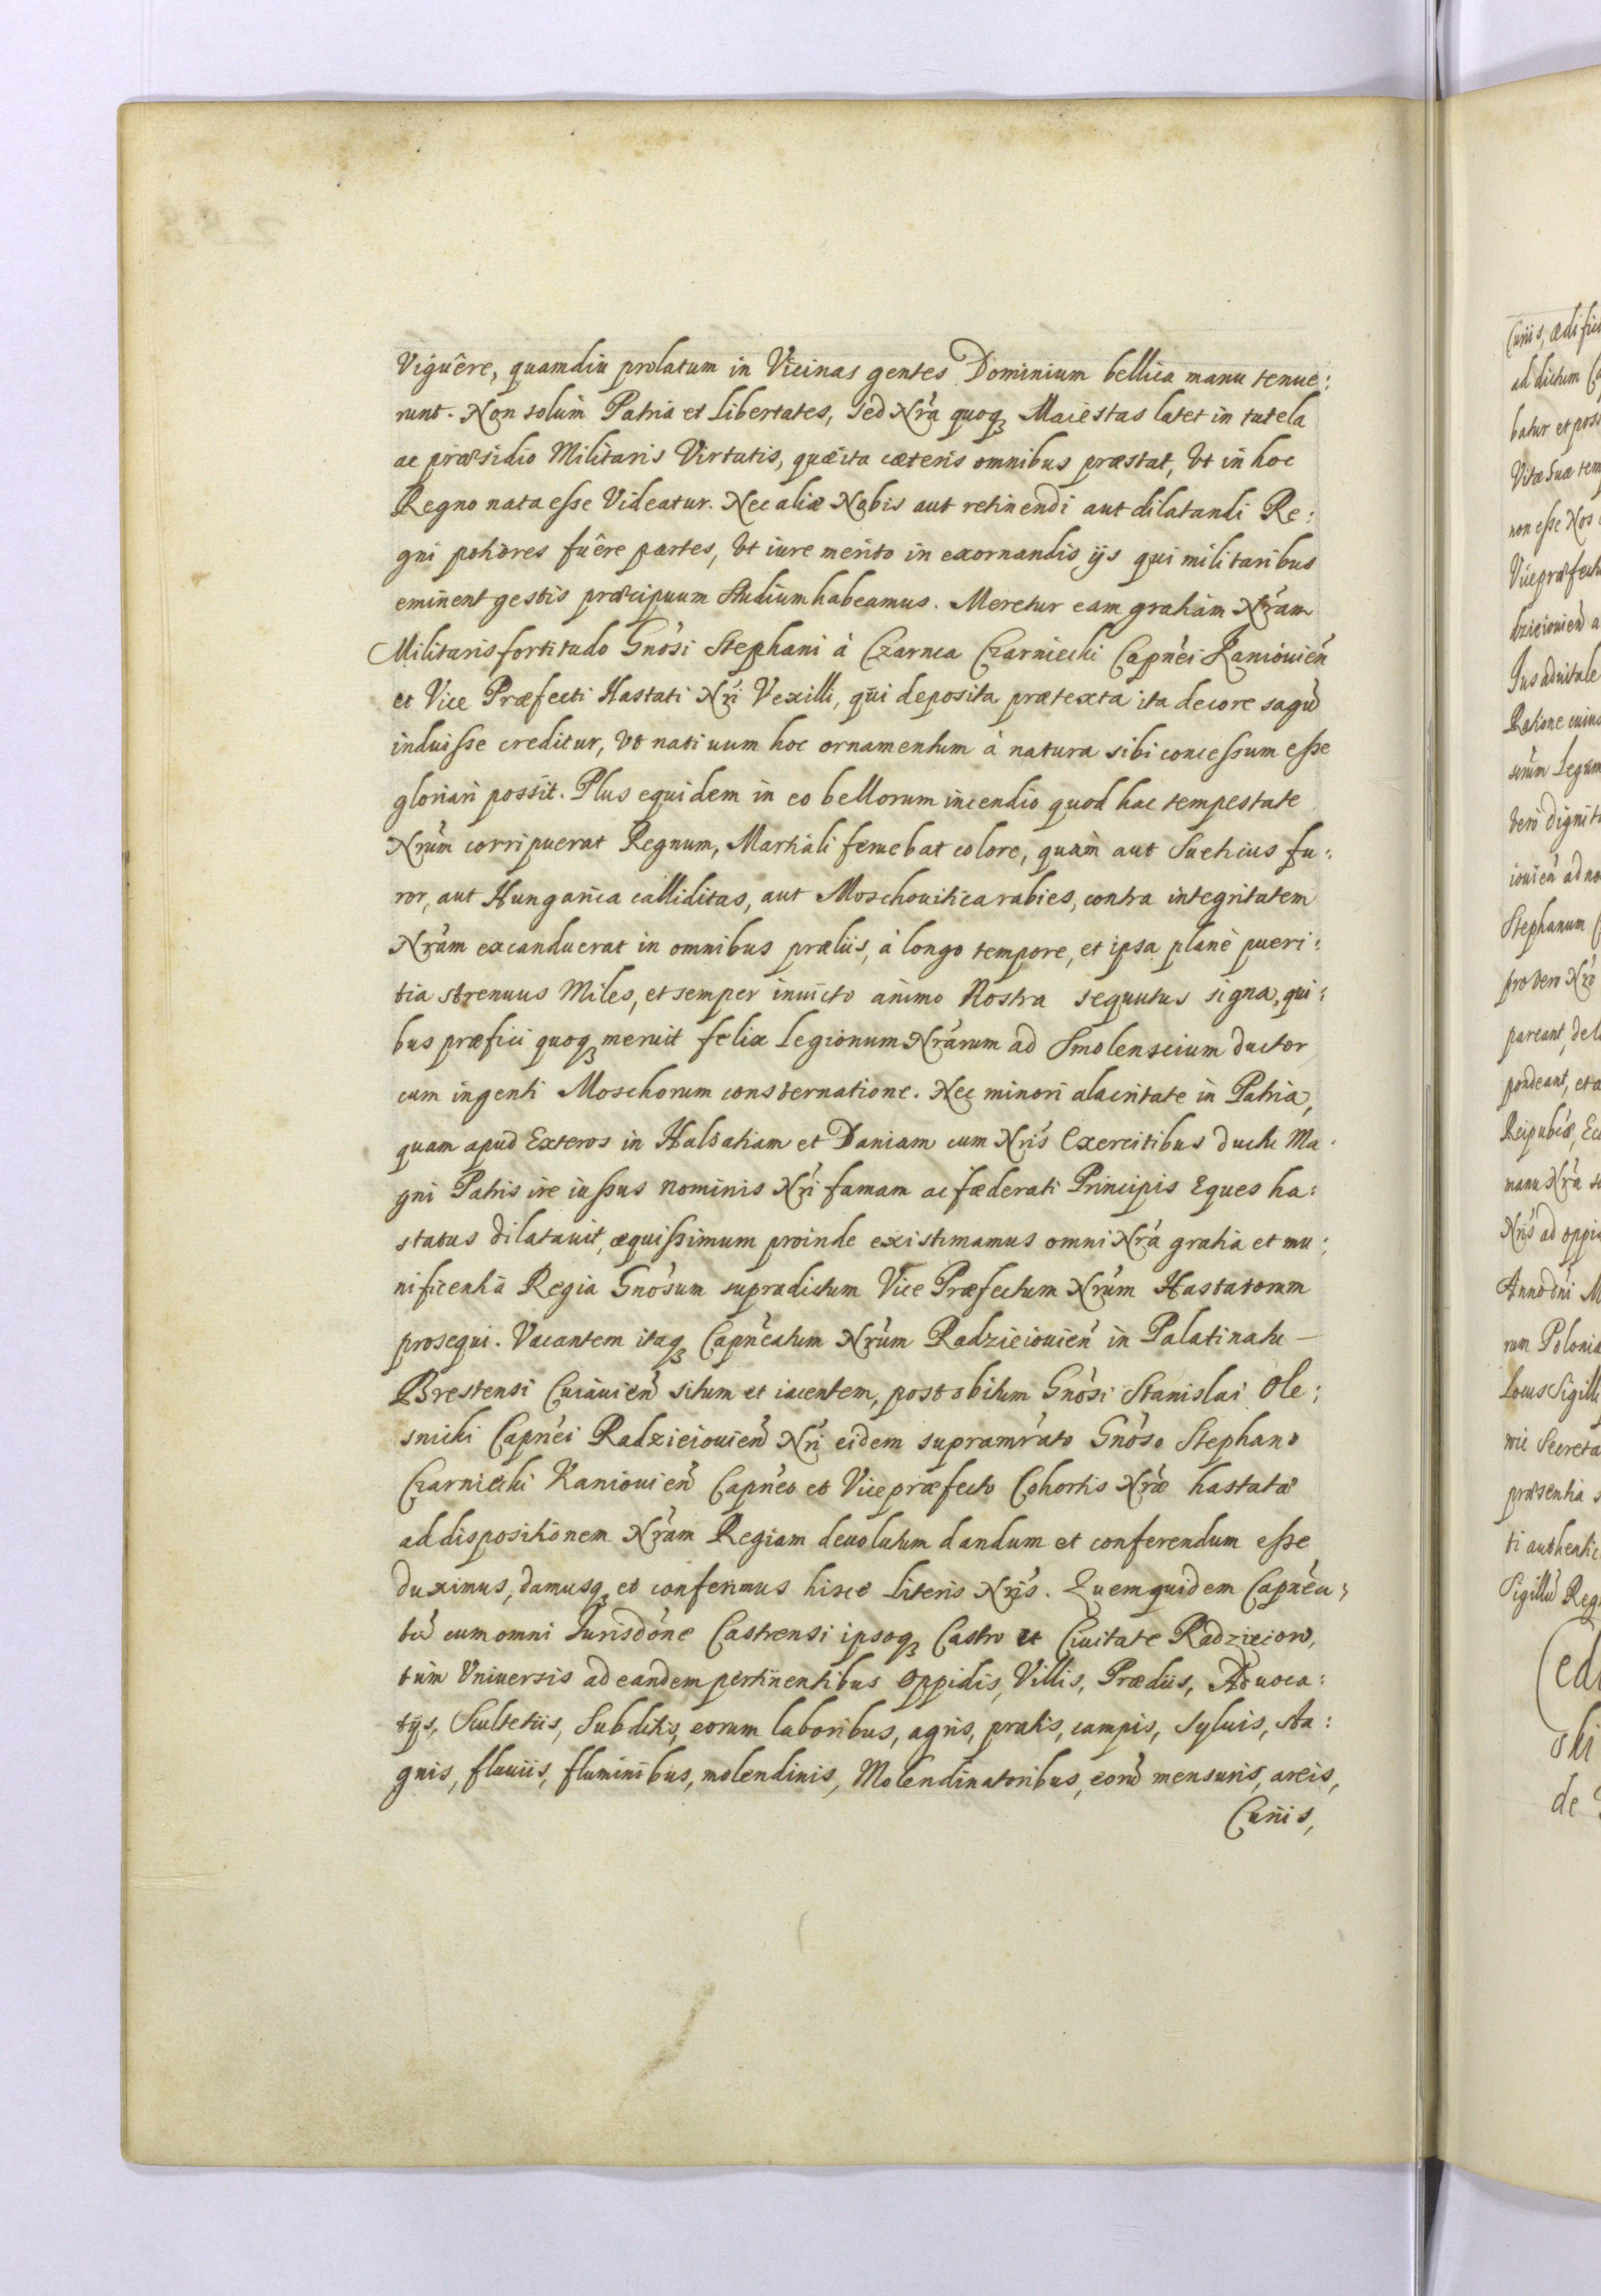 Viguêre, quamdiu prolatum in Vicinas gentes Dominium bellica manu tenue:
runt. Non solùm Patria et Libertates, sed Nr̃a quoqꝫ Maiestas latet in tutela
ac præsidio Militaris Virtutis, quæ ita cæteris omnibus præstat, Vt in hoc
Regno nata eſse Videatur. Nec aliæ Nobis aut retinendi aut dilatandi Re:
gni potiores fuêre partes, Vt iure merito in exornandis ijs qui militaribus
eminent gestis præcipuum studium habeamus. Meretur eam gratiam Nr̃am
Militaris fortitudo Gñosi Stephani à Czarnca Czarniecki Capñei Kaniouieñ
et Vice Præfecti Hastati Nr̃i Vexilli, qui deposita prætexta ita decore sagũ
induiſse creditur, Vt natiuum hoc ornamentum à natura sibi conceſsum eſse
gloriari possit. Plus equidem in eo bellorum incendio quod hac tempestate
Nr̃um corripuerat Regnum, Martiali feruebat colore, quàm aut Sueticus fu:
ror, aut Hungarica calliditas, aut Moschouitica rabies, contra integritatem
Nr̃am excanduerat in omnibus præliis, à longo tempore, et ipsa planè pueri:
tia strenuus Miles, et semper inuicto animo Nostra sequutus signa, qui:
bus præfici quoqꝫ meruit felix Legionum Nr̃arum ad Smolenscium ductor
cum ingenti Moschorum consternatione. Nec minori alacritate in Patria,
quam apud Exteros in Halsatiam et Daniam cum Nr̃is Exercitibus ductu Ma:
gni Patris ire iuſsus nominis Nr̃i famam ac fæderati Principis Eques ha:
status dilatauit, æquiſsimum proinde existimamus omni Nr̃a gratia et mu:
nificentia Regia Gñosum supradictum Vice Præfectum Nr̃um Hastatorum
prosequi. Vacantem itaqꝫ Capñeatum Nr̃um Radzieiouieñ in Palatinatu –
Brestensi Cuiauieñ situm et iacentem, post obitum Gñosi Stanislai Ole:
snicki Capñei Radzieiouieñ Nr̃i eidem supramr̃ato Gñoso Stephano
Czarniecki Kaniouieñ Capñeo et Vicepræfecto Cohortis Nr̃æ hastatæ
ad dispositionem Nr̃am Regiam deuolutum dandum et conferendum eſse
duximus, damusqꝫ et conferimus hisce Literis Nr̃is. Quem quidem Capñea:
tũ cum omni Jurisdõne Castrensi ipsoqꝫ Castro et Ciuitate Radzieiow,
tùm Vniuersis ad eandem pertinentibus Oppidis, Villis, Prædiis, Aduoca:
tijs, Scultetiis, Subditis, eorum laboribus, agris, pratis, campis, syluis, sta:
gnis, fluuiis, fluminibus, molendinis, Molendinatoribus, eorũ mensuris, areis,
Curiis,
Curiis, ædifici
ad dictum
batur et poss
Vitæ suæ tem
non eſse Nos
Vicepræfect
dzieiouieñ a
Jus aduitale
Ratione cuius
Legum
vero dignit
iouieñ ad no
Stephanum
pro vero Nr̃o
pareant, de
pondeant, et a
Reipublcæ, Ec
manu Nr̃a s
Nr̃is ad oppi
Anno Dñi M
rum Polonia
Locus Sigilli
Secreta
præsentia
ti authentic
Sigillũ Reg
ski
de